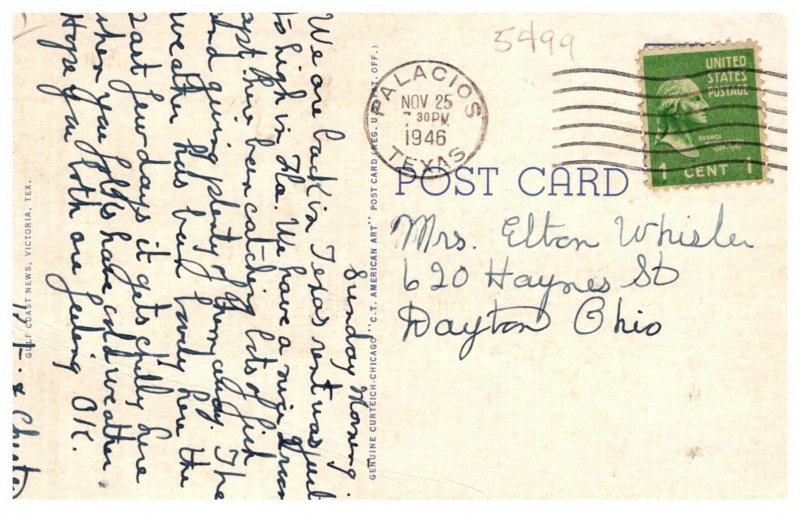 Sunday Morning.
We are back in Texas rent was just
to high in Fla. We have a nice
Capt here been catching lots of fish
and giving plenty of them away The
weather has been lovely here the
last few days it gets chilly here
when you folks have cold weather
Hope you both are feeling OK.
& Chester
GULF COAST NEWS, VICTORIA, TEX.
GENUINE CURTEICH-CHICAGO "C.T. AMERICAN ART" POST CARD (REG. U.S. PAT. OFF.)
5499
PALACIOS
NOV 25
7 30 PM
1946
TEXAS
UNITED
STATES
POSTAGE
GEORGE
1 CENT 1
POST CARD
Mrs. Elton Whisler
620 Haynes St
Dayton Ohio